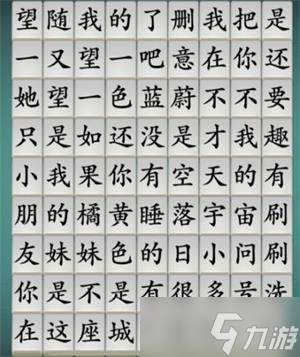 望随我的了删我把是
一又望一吧意在你还
她望一色蓝蔚不不要
只是如还没是才我趣
小我果你有空天的有
朋的橘黄睡落宇宙刷
友妹妹色的日小问刷
你是不是有很多号洗
在这座城
九游